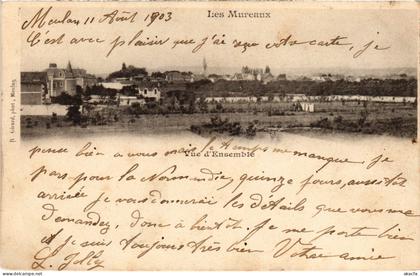 Meulan 11 Août 1903
Les Mureaux
C'est avec plaisir que j'ai reçu votre carte, je
D. Gérard, phot., Meulan.
Vue d'Ensemble
pense bien à vous mais le temps me manque, je
pars pour la Normandie, quinze jours, aussitôt
arrivée je vous donnerai les détails que vous me
demandez, donc à bientôt. Je me porte bien
et je suis toujours très bien Votre amie
L. Joly